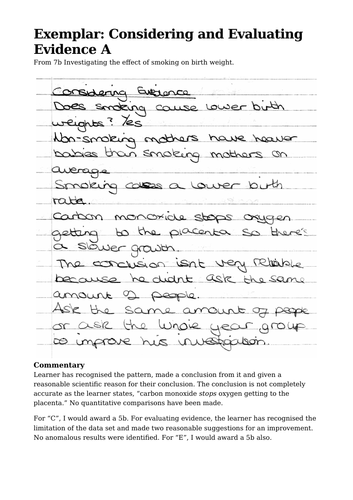 Exemplar: Considering and Evaluating
Evidence A
From 7b Investigating the effect of smoking on birth weight.
Considering Evidence
Does smoking cause lower birth
weights? Yes
Non-smoking mothers have heaver
babies than smoking mothers on
average
Smoking a lower birth
rate.
Carbon monoxide stops oxygen
getting to the placenta so there's
a slower growth.
The conclusion isnt very reliable
because he didnt ask the same
amount of people.
Ask the same amount of people
or ask the whole year group
to improve his investigation.
Commentary
Learner has recognised the pattern, made a conclusion from it and given a
reasonable scientific reason for their conclusion. The conclusion is not completely
accurate as the learner states, "carbon monoxide stops oxygen getting to the
placenta." No quantitative comparisons have been made.
For "C", I would award a 5b. For evaluating evidence, the learner has recognised the
limitation of the data set and made two reasonable suggestions for an improvement.
No anomalous results were identified. For "E", I would award a 5b also.